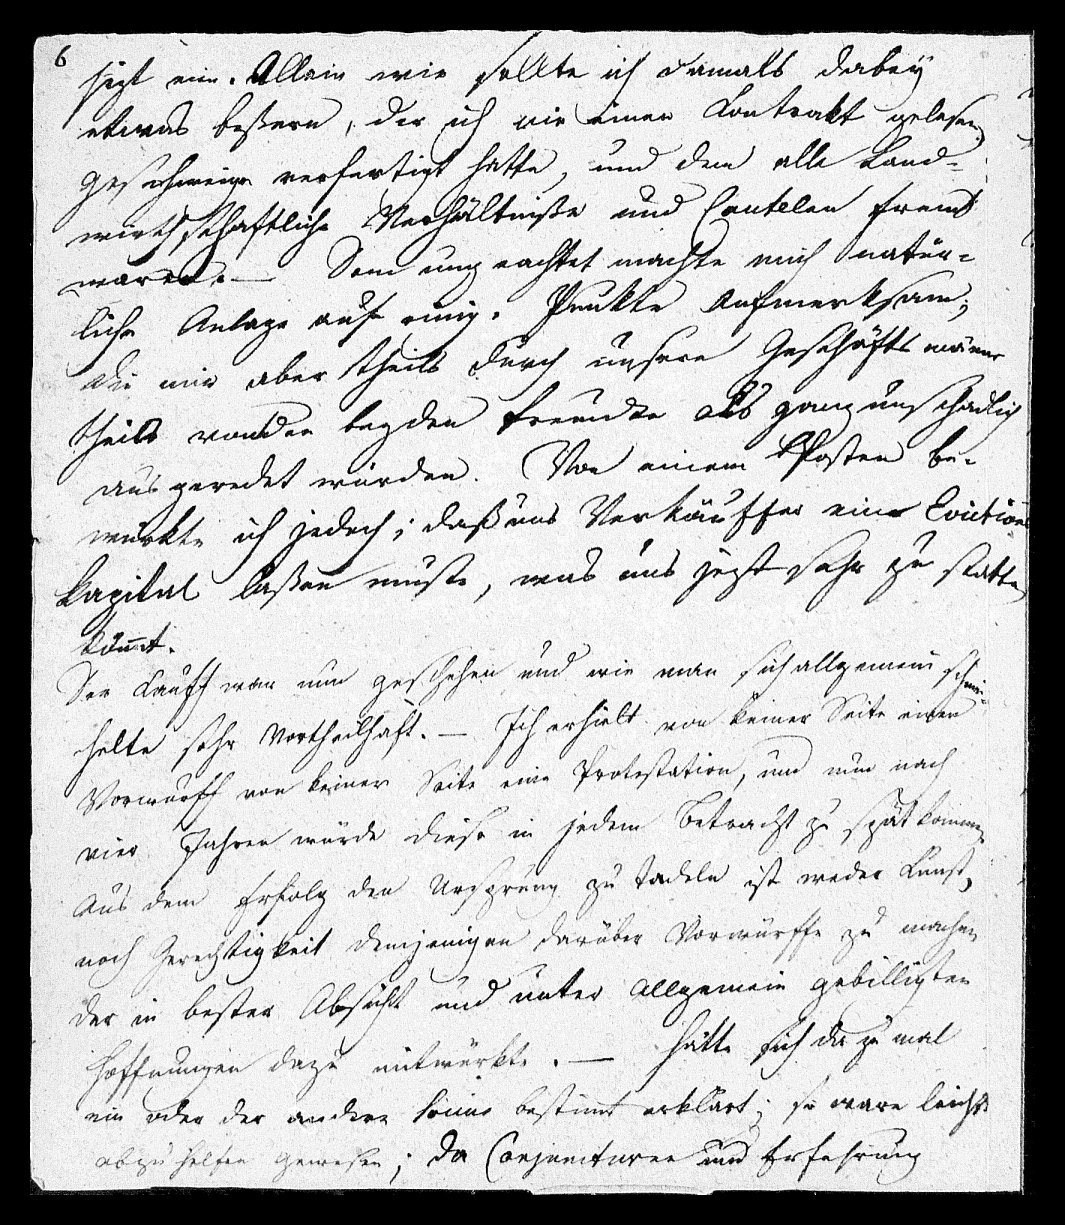 6
jezt ein. Allein wie sollte ich damals dabey
etwas beßern, der ich nie einen Contrakt gelesen
geschweige verfertigt hatte, und dem alle Land-
wirthschaftliche Verhältniße und Cautelen fremd
waren. — Dem ungeachtet machte mich natür-
liche Anlage auf einig. Punkte Aufmerksam;
die mir aber theils durch unsere Geschäftsmänner
theils von den beyden Freunden als ganz unschädlich
ausgeredet wurden. Von einem Posten be-
würkte ich jedoch; daß uns Verkäuffer ein Evictions
Kapital laßen muste, was uns jezt sehr zu statten
kömt.
Der Kauff war nun geschehen und wie man sich allgemein schmei-
chelte sehr Vortheilhaft. — Ich erhielt von keiner Seite einen
Vorwurff von keiner Seite eine Protestation, und nun nach
vier Jahren würde diese in jedem Betracht zu spät kommen
Aus dem Erfolg den Ursprung zu tadeln ist weder Kunst,
noch Gerechtigkeit demjenigen darüber Vorwürffe zu machen
der in bester Absicht und unter allgemein gebilligten
Hoffnungen dazu mitwürkte. — Hätte sich dazumal
ein oder der andere bestimt erklärt; so ware leicht
abzuhelfen gewesen; da Conjuncturen und Erfahrung